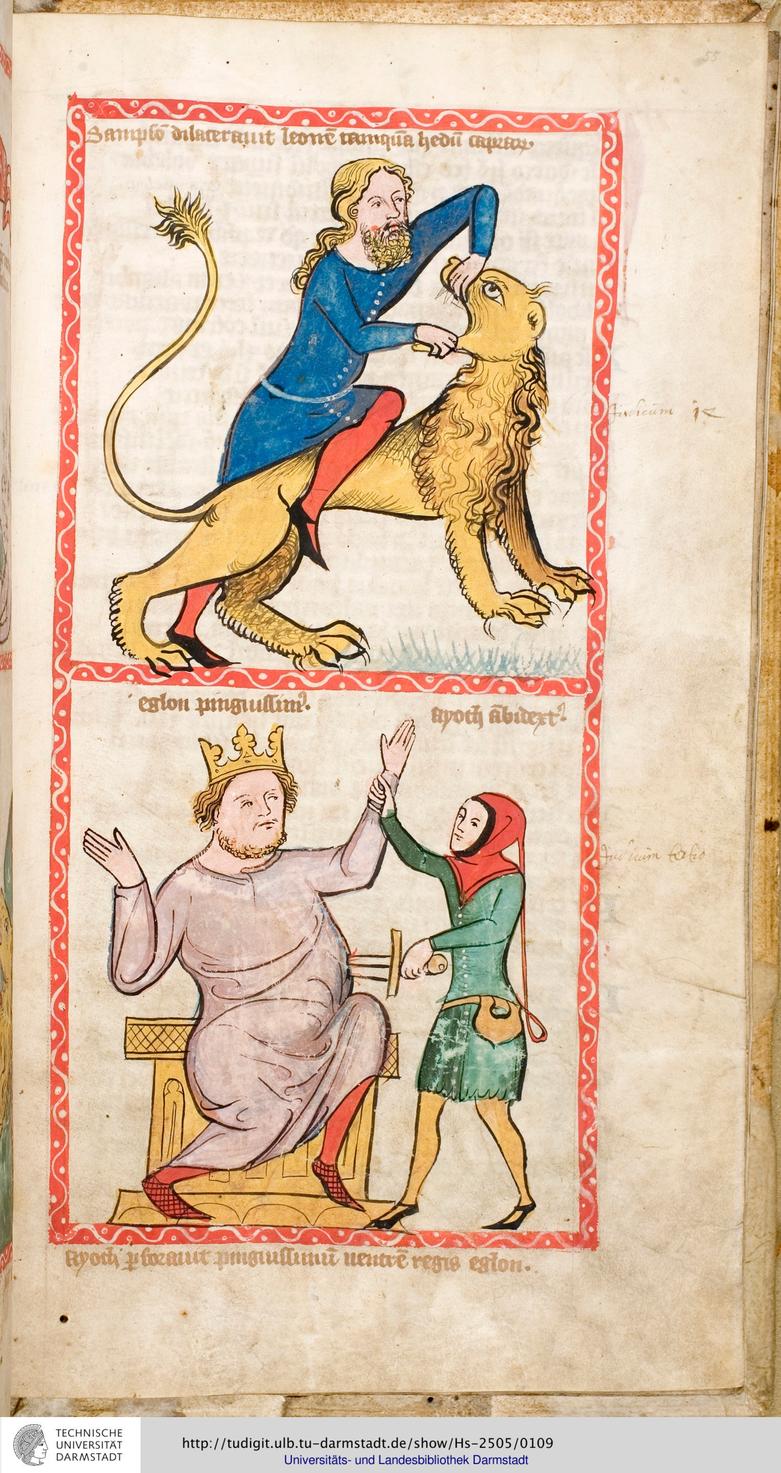 55
Sampsō dilaceravit leonē tamquā hedū
Judicum 14
eglon pinguissim⁹.
ayoth ābidext⁹.
Judicum tertio
ayoth pforavit pinguissimū ventrē regis eglon.
TECHNISCHE
UNIVERSITÄT
DARMSTADT
http://tudigit.ulb.tu-darmstadt.de/show/Hs-2505/0109
Universitäts- und Landesbibliothek Darmstadt